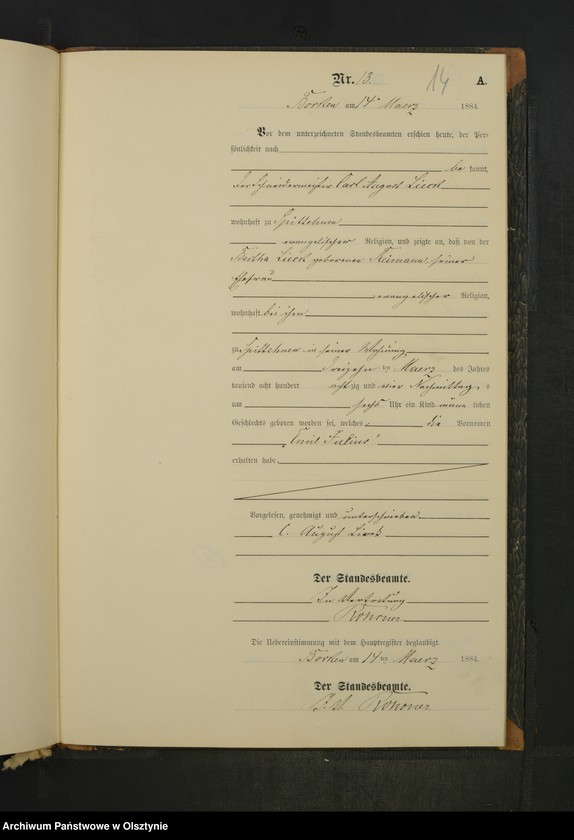 14
Nr. 13. A.
Borken am 14ten Maerz 1884.
Vor dem unterzeichneten Standesbeamten erschien heute, der Per-
sönlichkeit nach
be kannt,
der Schneidermeister Carl August Lieck
wohnhaft zu
evangelischer Religion, und zeigte an, daß von der
Bertha Lieck geborenen Reimann, seiner
Ehefrau
evangelischer Religion,
wohnhaft bei ihm
zu in seiner Wohnung
am dreizehn ten Maerz des Jahres
tausend acht hundert acht zig und vier Nachmittag s
um sechs Uhr ein Kind männ lichen
Geschlechts geboren worden sei, welches die Vornamen
"Emil Julius"
erhalten habe.
Vorgelesen, genehmigt und unterschrieben
C. August Lieck
Der Standesbeamte.
In Vertretung
Die Uebereinstimmung mit dem Hauptregister beglaubigt.
Borken am 14 ten Maerz 1884.
Der Standesbeamte.
Archiwum Państwowe w Olsztynie